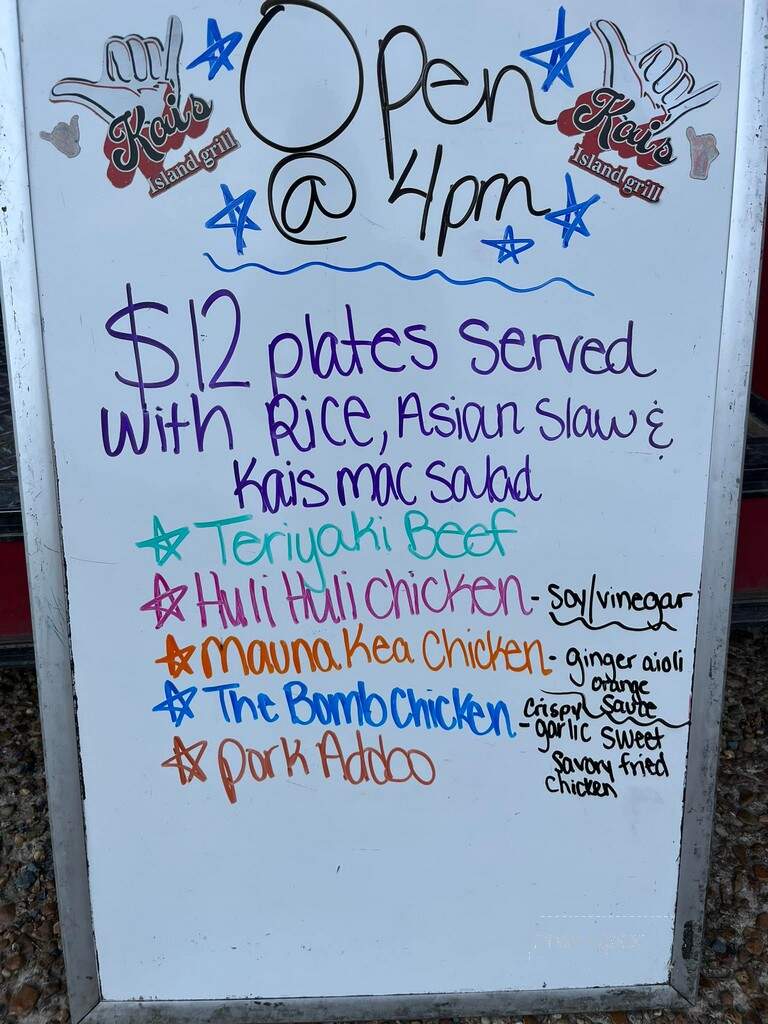 Kai's
Island grill
Open
@ 4pm
Kai's
Island grill
$12 plates served
with Rice, Asian Slaw &
Kais mac salad
Teriyaki Beef
Huli Huli chicken - soy/vinegar
Mauna Kea Chicken - ginger aioli
orange
sauce
The Bomb Chicken - crispy
garlic sweet
savory fried
chicken
Pork Adobo